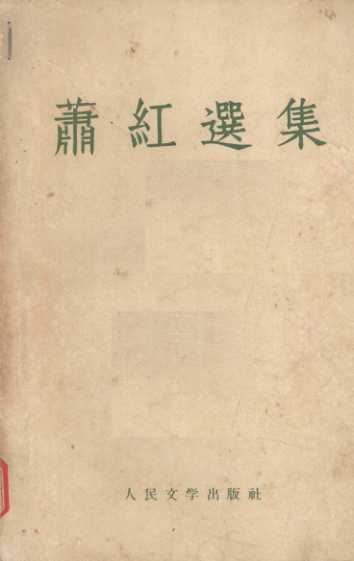 蕭紅選集
人民文学出版社